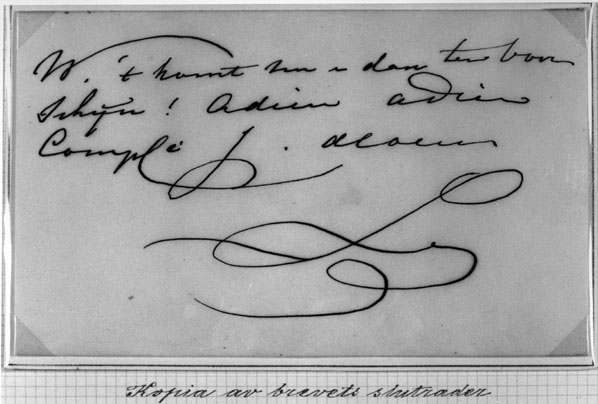 W. 't komt nu u dan ten voor
Schijn! Adieu adieu
Complt J. deloeus
Kopia av brevets slutrader